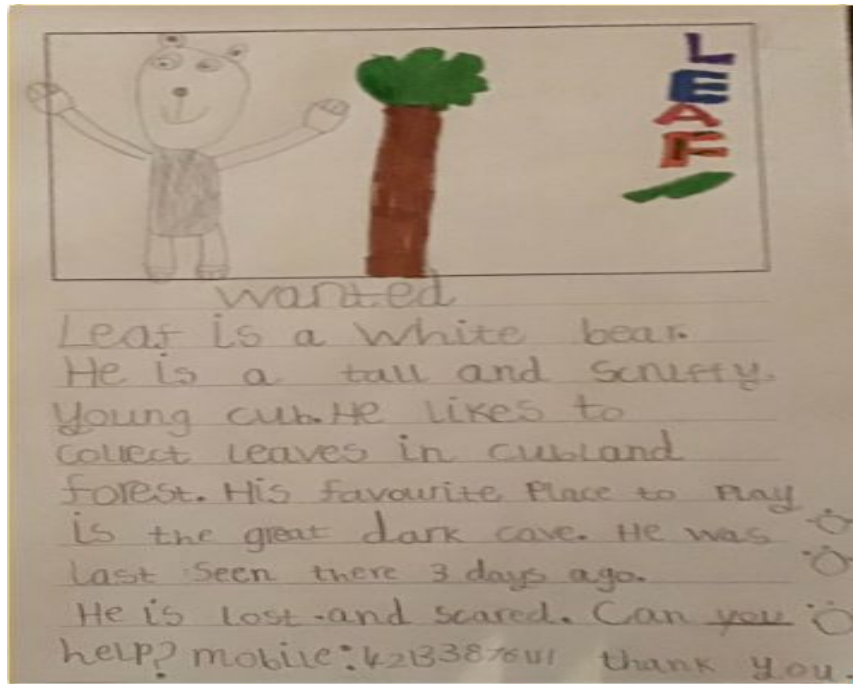 LEAF
wanted
Leaf is a white bear.
He is a tall and scruffy.
young cub. He likes to
collect leaves in cubland
forest. His favourite Place to Play
is the great dark cave. He was
last seen there 3 days ago.
He is lost and scared. Can you
help? mobile: thank you.